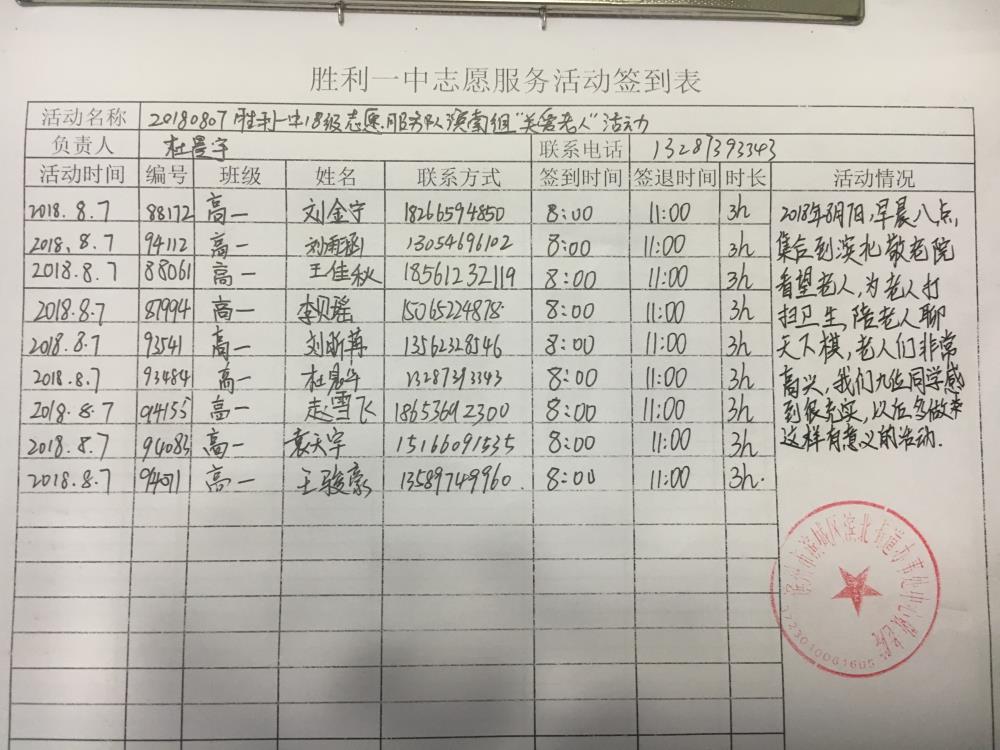 胜利一中志愿服务活动签到表
活动名称 20180807胜利一中18级志愿服务队滨南组“关爱老人”活动
负责人 杜昱宇 联系电话 13287393343
活动时间 编号 班级 姓名 联系方式 签到时间 签退时间 时长 活动情况
2018.8.7 88172 高一 刘金宁 18266594850 8:00 11:00 3h
2018.8.7 94112 高一 刘雨涵 13054696102 8:00 11:00 3h
2018.8.7 88061 高一 王佳秋 18561232119 8:00 11:00 3h
2018.8.7 87994 高一 李贝瑶 15065224878 8:00 11:00 3h
2018.8.7 93541 高一 刘昕苒 13562328546 8:00 11:00 3h
2018.8.7 93484 高一 杜昱宇 13287393343 8:00 11:00 3h
2018.8.7 94155 高一 赵雪飞 18653692300 8:00 11:00 3h
2018.8.7 94083 高一 袁天宇 15166091535 8:00 11:00 3h
2018.8.7 94071 高一 王骏豪 13589749960. 8:00 11:00 3h.
2018年8月7日,早晨八点,
集合到滨北敬老院
看望老人,为老人打
扫卫生,陪老人聊
天下棋,老人们非常
高兴,我们九位同学感
到很充实,以后多做些
这样有意义的活动.
滨州市滨城区滨北街道办事处中心敬老院
3723010061605